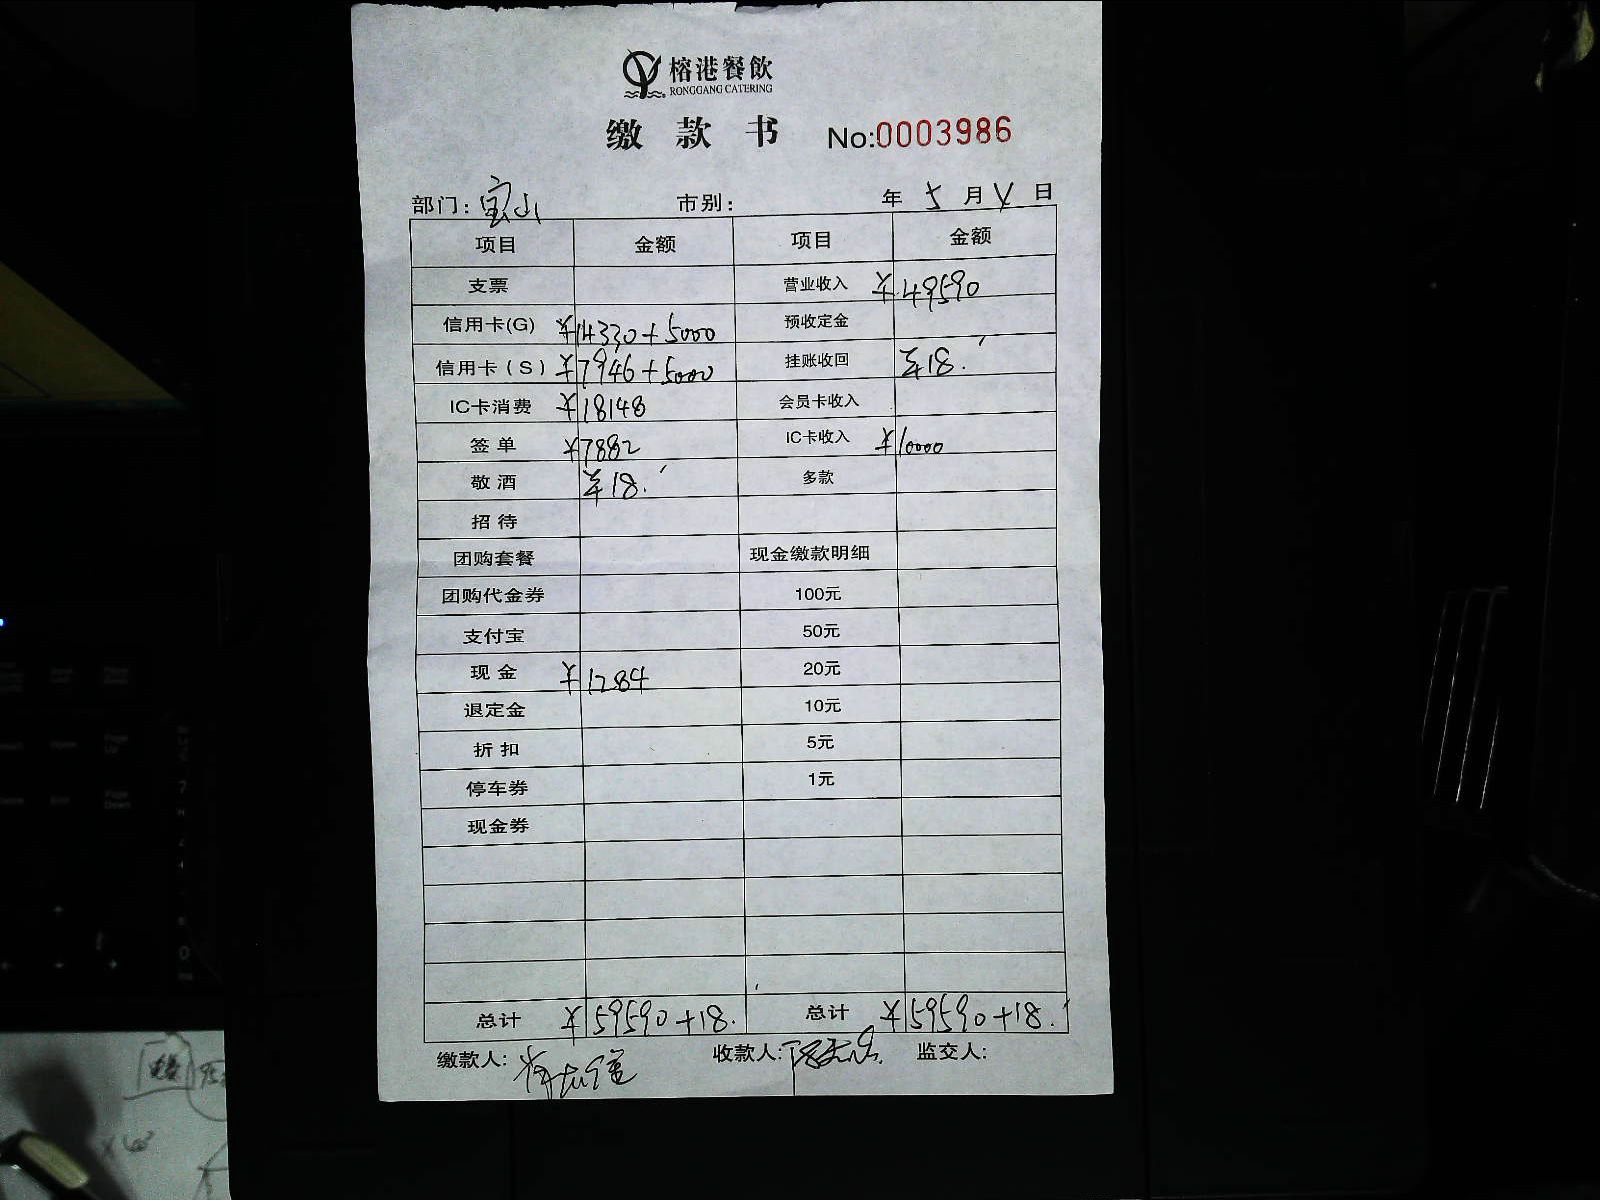 榕港餐飲
RONGGANG CATERING
缴款书 No:0003986
部门: 宝山 市别: 年 5 月 4 日
项目 金额 项目 金额
支票 营业收入 ¥49590
信用卡(G) ¥14330+5000 预收定金
信用卡(S) ¥7946+5000 挂账收回 ¥18.
IC卡消费 ¥18148 会员卡收入
签单 ¥7882 IC卡收入 ¥10000
敬酒 ¥18. 多款
招待
团购套餐 现金缴款明细
团购代金券 100元
支付宝 50元
现金 ¥1284 20元
退定金 10元
折扣 5元
停车券 1元
现金券
总计 ¥59590+18. 总计 ¥59590+18.
缴款人: 收款人: 监交人: